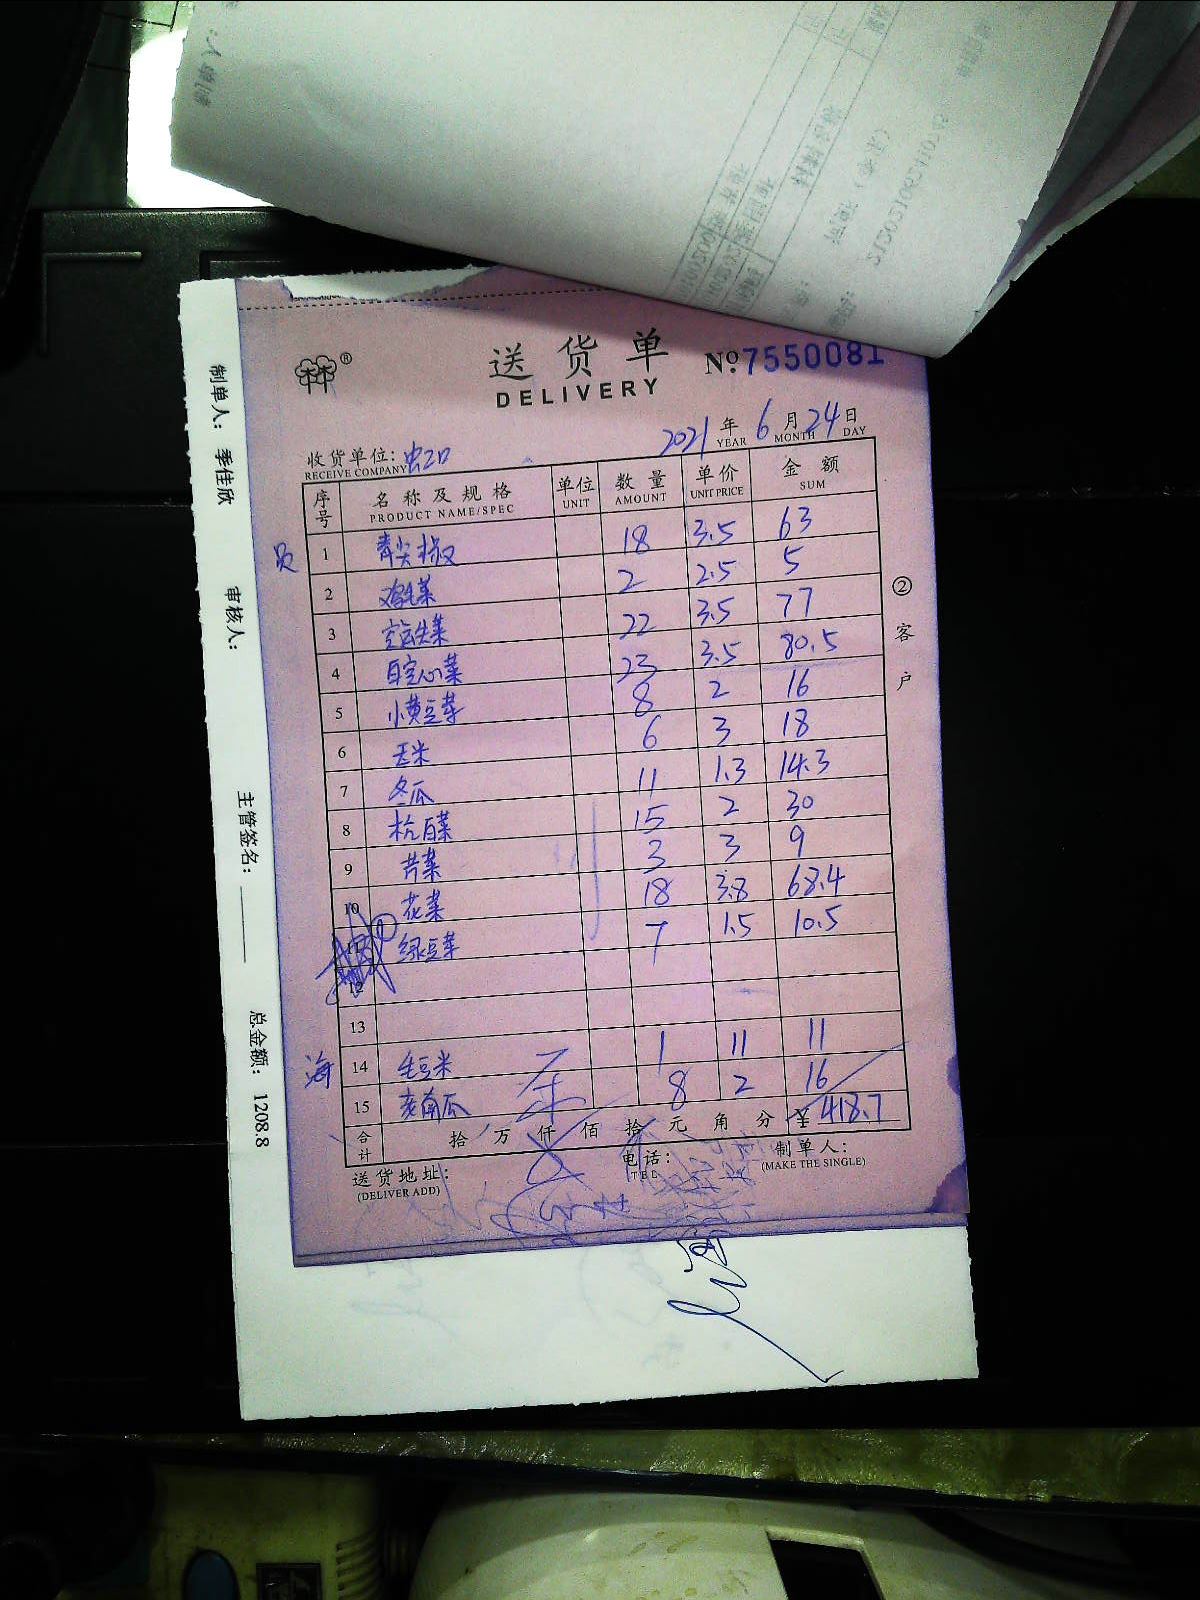 送货单
DELIVERY
№ 7550081
2021 年 6 月 24 日
YEAR MONTH DAY
收货单位: 虫工口
RECEIVE COMPANY
序号 名称及规格 单位 数量 单价 金额
PRODUCT NAME/SPEC UNIT AMOUNT UNIT PRICE SUM
员
1 青尖椒 18 3.5 63
2 鸡毛菜 2 2.5 5
3 22 3.5 77
4 白空心菜 23 3.5 80.5
5 小黄豆芽 8 2 16
6 玉米 6 3 18
7 冬瓜 11 1.3 14.3
8 杭白菜 15 2 30
9 芹菜 3 3 9
10 花菜 18 3.8 68.4
绿豆芽 7 1.5 10.5
12
13
海
14 毛豆米 1 11 11
15 老南瓜 8 2 16
合计 拾 万 仟 佰 拾 元 角 分 ¥ 418.7
送货地址: 电话: 制单人:
(DELIVER ADD) TEL (MAKE THE SINGLE)
②客户
制单人: 季佳欣
审核人:
主管签名:
总金额: 1208.8